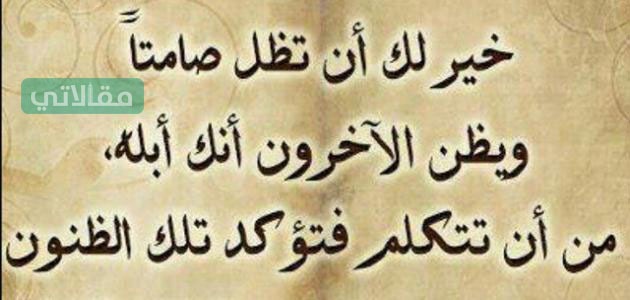 خير لك أن تظل صامتاً
مقالاتي
ويظن الآخرون أنك أبله،
من أن تتكلم فتؤكد تلك الظنون